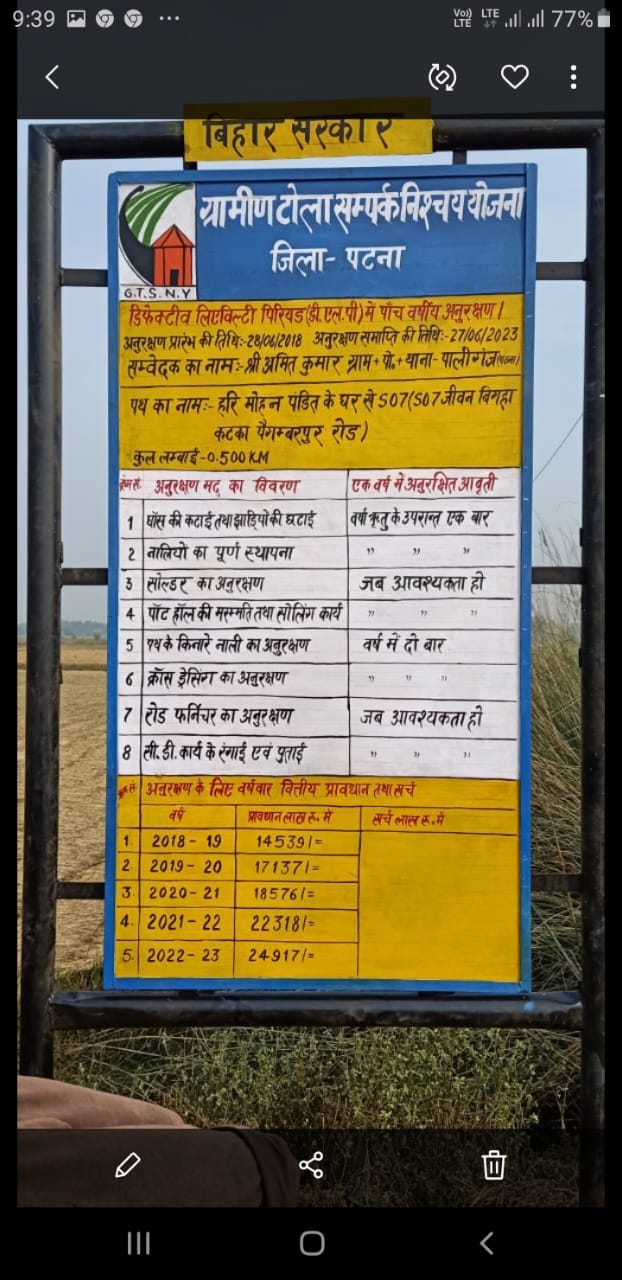 9:39 ... Vo) LTE LTE 77%
बिहार सरकार
ग्रामीण टोला सम्पर्क निश्चय योजना
जिला- पटना
G.T.S.N.Y
डिफेक्टीव लिएबिल्टी पिरियड (डी.एल.पी) में पाँच वर्षीय अनुरक्षण।
अनुरक्षण प्रारंभ की तिथि:-28/06/2018 अनुरक्षण समाप्ति की तिथि:-27/06/2023
सम्वेदक का नाम:- श्री अमित कुमार ग्राम+पो.+थाना- पालीगंज (पटना)
पथ का नाम:- हरि मोहन पंडित के घर से S07(S07 जीवन बिगहा
कटका पैगम्बरपुर रोड)
कुल लम्बाई-0.500 KM
क्रम सं. अनुरक्षण मद का विवरण एक वर्ष में अनुरक्षित आवृती
1 घाँस की कटाई तथा झाड़ियों की छटाई वर्षा ऋतु के उपरान्त एक बार
2 नालियों का पूर्ण स्थापना " " "
3 सोल्डर का अनुरक्षण जब आवश्यकता हो
4 पॉट हॉल की मरम्मति तथा सीलिंग कार्य " " "
5 पथ के किनारे नाली का अनुरक्षण वर्ष में दो बार
6 क्रॉस ड्रेसिंग का अनुरक्षण " " "
7 रोड फर्निचर का अनुरक्षण जब आवश्यकता हो
8 सी.डी. कार्य के रंगाई एवं पुताई " " "
क्रम सं. अनुरक्षण के लिए वर्षवार वित्तीय प्रावधान तथा खर्च
वर्ष प्रावधान लाख रू. में खर्च लाख रू. में
1. 2018 - 19 14539/=
2. 2019 - 20 17137/=
3. 2020 - 21 18576/=
4. 2021 - 22 22318/=
5. 2022 - 23 24917/=